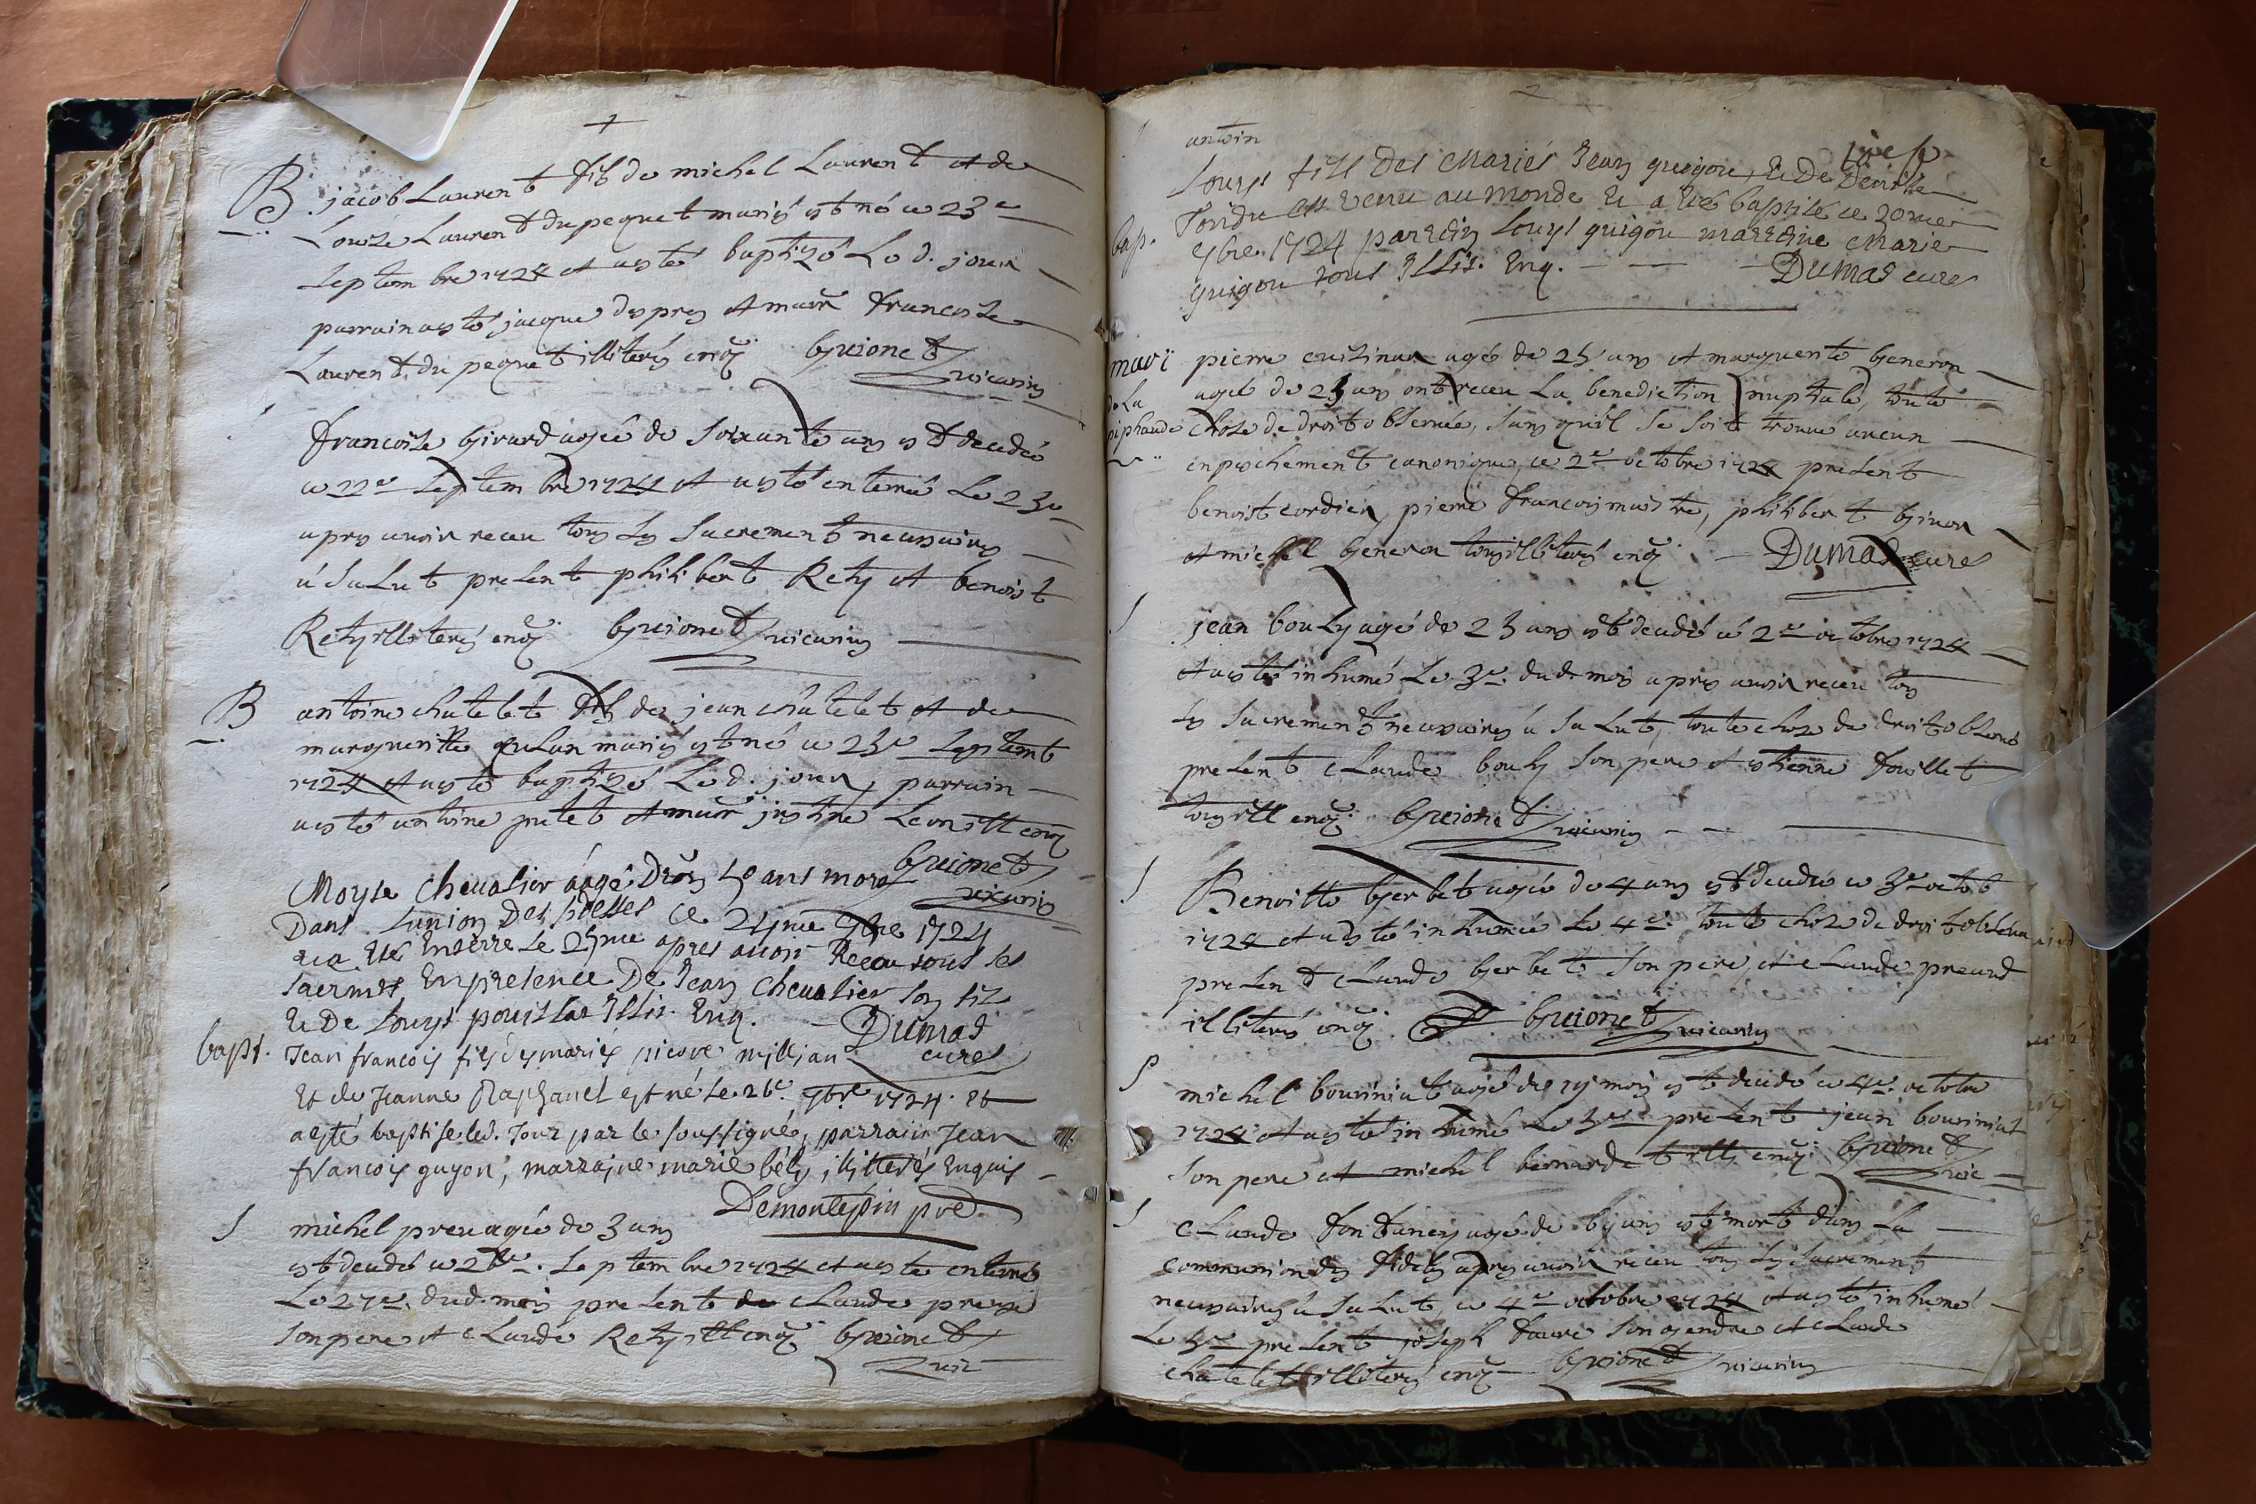 B. jacob Laurent fils de michel Laurent et de
Louise Laurent du peque t mariés est né ce 23e
septembre 1724 et a esté baptizé Le d. jour
parrain a esté jacque despres et marr francoise
Laurent du peque t illiterés enq. Guionet
vicarius
francoise Girard agée de soixante ans est decedée
ce 22e septembre 1724 et a esté enterrée Le 23e
apres avoir receu tous les sacrement necessaires
à salut present philibert Rety et benoist
Rety illiterés enq. Guionet vicarius
B antoine chatelet fils de jean chatelet et de
margueritte mariés est né ce 23e septemb
1724 et a esté baptizé Le d. jour, parrain
a esté antoine putet et marr justine Leon ill enq
Guionet
vicarius
Moyse Chevalier aagé 50 ans mort
Dans Lunion Des fidelles Ce 24me 7bre 1724
et a Eté Enterre Le 25me apres avoir Receu tous les
sacrmts En presence De Jean Chevalier son fils
Et De Louys Illit. Enq. Dumas
curé
bapt. Jean francois fils des mariés millian
Et de Jeanne Raphanel est né le 26e 7bre 1724. Et
a esté baptisé led. Jour par le soussigné, parrain Jean
francois guyon, marraine marie bély, illiterés Enquis
Demontepin pre.
S michel preu agée de 3 ans
est decedé ce 26e. septembre 1724 et a esté enterré
Le 27e. dud. mois present de claude preu
son pere et claude Rety ill enq. Guionet
vic
2
antoin
Louys fils Des Mariés Jean guigou Et De Denise
bap. est venu au monde Et a Eté baptisé ce 20me
7bre. 1724 parrein Louys guigou marreine Marie
guigou tous Illit. Enq. Dumas curé
mari pierre agée de 25 ans et marguerite Generon
agée de 23 ans ont receu La benediction nuptale, toute
de La
chose de droit observée, sans qu'il se soit trouvé aucun
enpechement canonique, ce 2e octobre 1724 present
benoist cordier, pierre francois maistre, philibert
et michel Generon tous illiterés enq. Dumas curé
S jean bouly agé de 23 ans est decedé ce 2e octobre 1724
et a esté inhumé Le 3e. dud. mois apres avoir receu tous
les sacrement necessaires à salut, toute chose de droit observé
present claude bouly son pere et etienne foillet
tous ill enq. Guionet vicarius
S Benoitte Gerbet agée de 4 ans est decedée ce 3e octob
1724 et a esté inhumée Le 4e. toute chose de droit observ
present claude Gerbet son pere, et claude preaud
illiterés enq. Guionet vicarius
S michel bouriniat agé de mois est decedé ce 4e. octobre
1724 et a esté inhumé Le 5e present jean bouriniat
son pere et michel bernardet ill, enq. Guionet
vic
S claude fontanei agé de ans est mort dans La
communion des fideles apres avoir receu tous les sacrement
necessaires à salut, ce 4e octobre 1724 et a esté inhumé
Le 5e present joseph faure son gendre et claude
chatelet illiterés enq. Guionet vicarius